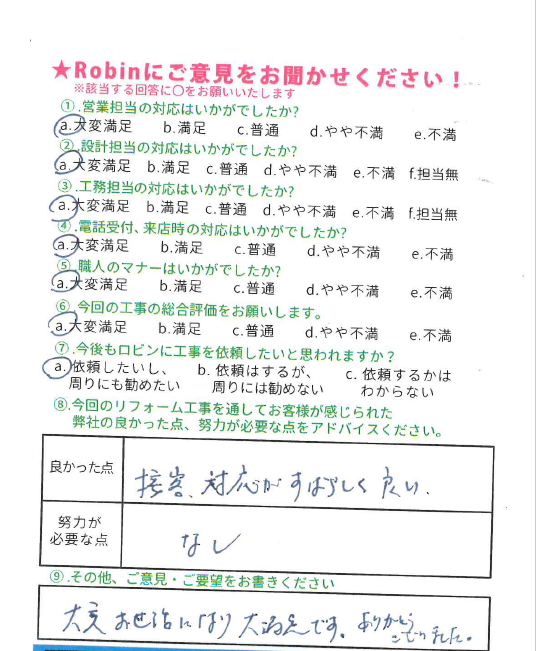 ★Robinにご意見をお聞かせください！
※該当する回答に〇をお願いいたします
①.営業担当の対応はいかがでしたか?
a.大変満足 b.満足 c.普通 d.やや不満 e.不満
②.設計担当の対応はいかがでしたか?
a.大変満足 b.満足 c.普通 d.やや不満 e.不満 f.担当無
③.工務担当の対応はいかがでしたか?
a.大変満足 b.満足 c.普通 d.やや不満 e.不満 f.担当無
④.電話受付、来店時の対応はいかがでしたか?
a.大変満足 b.満足 c.普通 d.やや不満 e.不満
⑤.職人のマナーはいかがでしたか?
a.大変満足 b.満足 c.普通 d.やや不満 e.不満
⑥.今回の工事の総合評価をお願いします。
a.大変満足 b.満足 c.普通 d.やや不満 e.不満
⑦.今後もロビンに工事を依頼したいと思われますか？
a.依頼したいし、 b.依頼はするが、 c.依頼するかは
周りにも勧めたい 周りには勧めない わからない
⑧.今回のリフォーム工事を通してお客様が感じられた
弊社の良かった点、努力が必要な点をアドバイスください。
良かった点
接客、対応がすばらしく良い.
努力が
必要な点
なし
⑨.その他、ご意見・ご要望をお書きください
大変お世話になり大満足です。ありがとう
ございました。